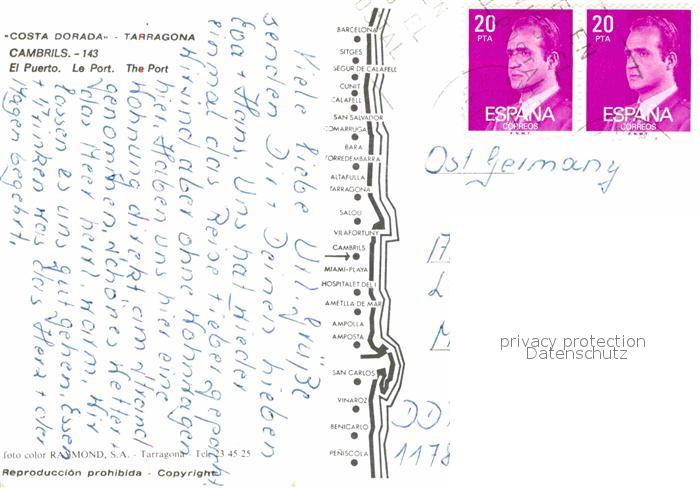 "COSTA DORADA" - TARRAGONA
CAMBRILS. - 143
El Puerto. Le Port. The Port
Viele liebe Url. Grüße
senden Dir + Deinen Lieben
Eva + Heinz. Uns hat wieder
einmal das Reisefieber gepackt.
Sind aber ohne Wohnwagen
hier. Haben uns hier eine
Wohnung direkt am Strand
genommen. Schönes Wetter +
das Meer herrl. warm. Wir
lassen es uns gut gehen. Essen
+ trinken was das Herz + der
Magen begehrt.
foto color RAYMOND, S.A. - Tarragona - Tel. 23 45 25
Reproducción prohibida - Copyright
BARCELONA
SITGES
SEGUR DE CALAFELL
CUNIT
CALAFELL
SAN SALVADOR
COMARRUGA
BARA
TORREDEMBARRA
ALTAFULLA
TARRAGONA
SALOU
VILAFORTUNY
CAMBRILS
MIAMI-PLAYA
HOSPITALET DEL I.
AMETLLA DE MAR
AMPOLLA
AMPOSTA
SAN CARLOS
VINAROZ
BENICARLO
PEÑISCOLA
20 PTA
ESPAÑA
CORREOS
F.N.M.T.
20 PTA
ESPAÑA
CORREOS
F.N.M.T.
Ost Germany
privacy protection
Datenschutz
DD
1178